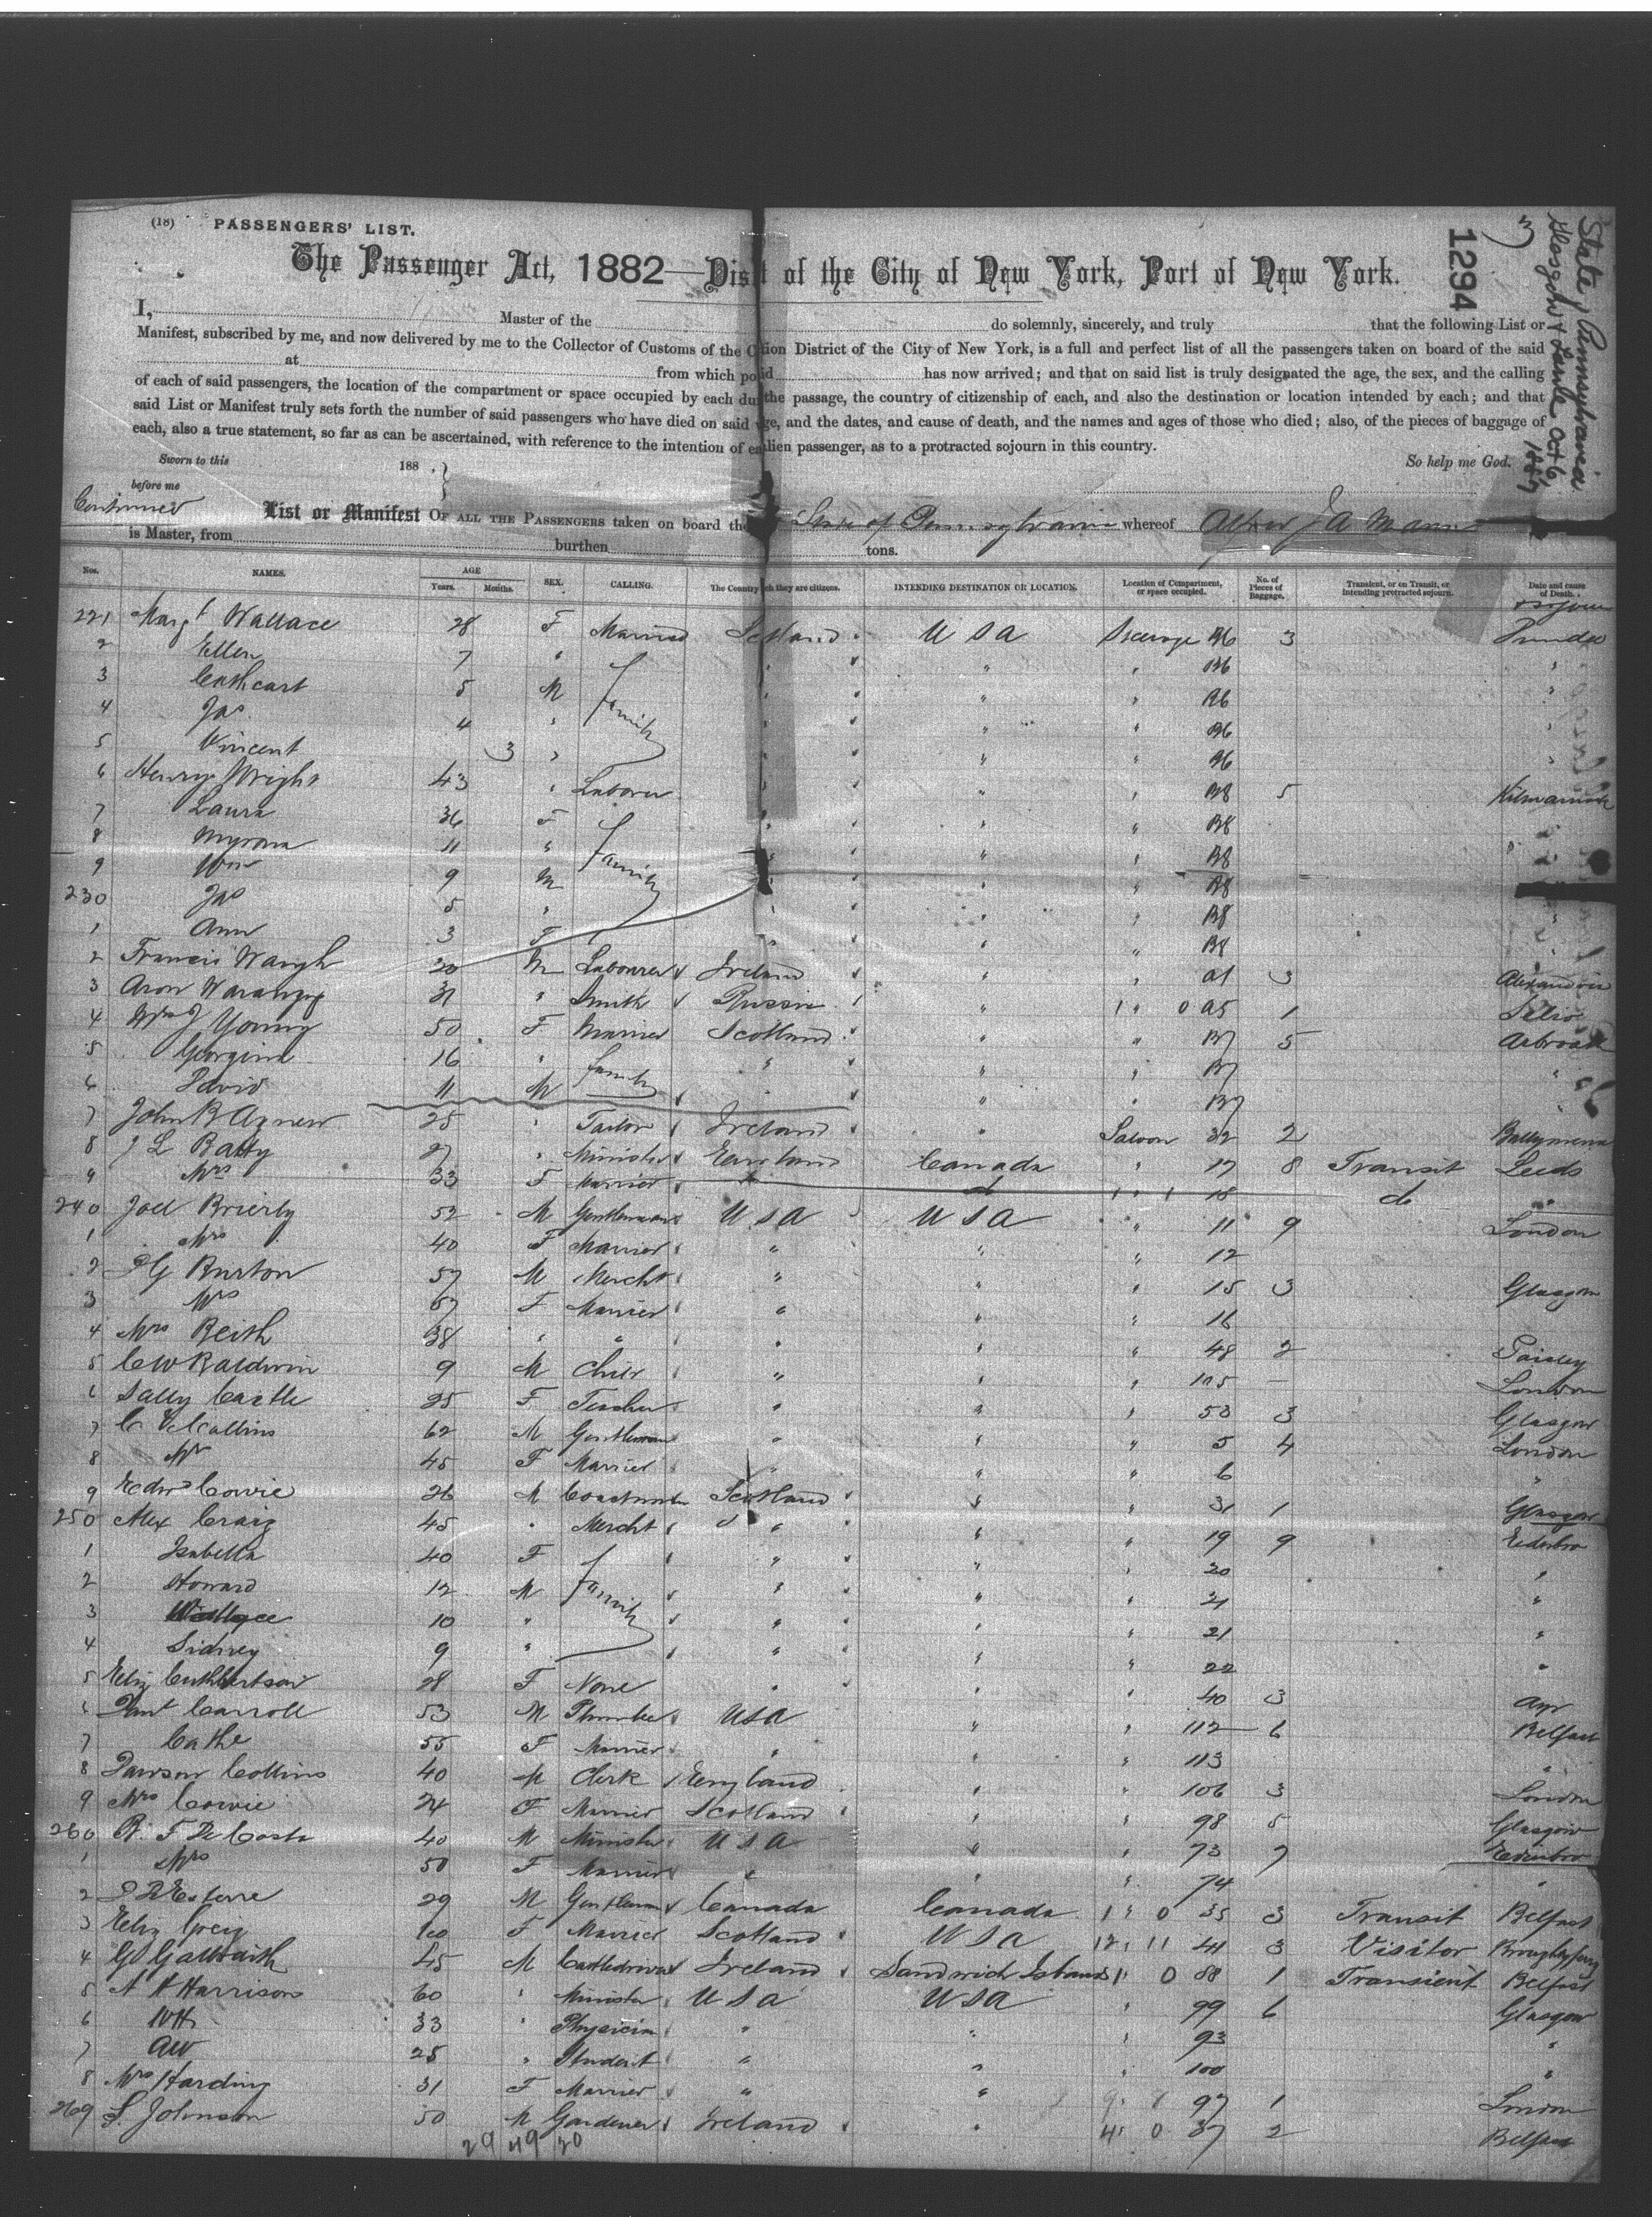 (18) PASSENGERS' LIST.
The Passenger Act, 1882—Dis t of the City of New York, Port of New York.
1294
3
State Pennsylvania
Glasgow & Larne Oct 6
1887
I, Master of the do solemnly, sincerely, and truly that the following List or
Manifest, subscribed by me, and now delivered by me to the Collector of Customs of the C tion District of the City of New York, is a full and perfect list of all the passengers taken on board of the said
at from which po d has now arrived; and that on said list is truly designated the age, the sex, and the calling
of each of said passengers, the location of the compartment or space occupied by each du the passage, the country of citizenship of each, and also the destination or location intended by each; and that
said List or Manifest truly sets forth the number of said passengers who have died on said ge, and the dates, and cause of death, and the names and ages of those who died; also, of the pieces of baggage of
each, also a true statement, so far as can be ascertained, with reference to the intention of e lien passenger, as to a protracted sojourn in this country.
Sworn to this 188 . } So help me God.
before me
Continued List or Manifest OF ALL THE PASSENGERS taken on board the State of Pennsylvania whereof J A Mann
is Master, from burthen tons.
Nos. NAMES. AGE Years. Months. SEX. CALLING. The Country ch they are citizens. INTENDING DESTINATION OR LOCATION. Location of Compartment, or space occupied. No. of Pieces of Baggage. Transient, or on Transit, or intending protracted sojourn. Date and cause of Death.
221 Margt Wallace 28 F Married Scotland USA Steerage B6 3 Dundee
2 Ellen 7 " " " B6 "
3 Cathcart 5 M family " " B6 "
4 Jas 4 " " " B6 "
5 Vincent 3 " " " B6 "
6 Henry Wright 43 " Laborer " " B8 5 Kilmarnock
7 Laura 36 F " " B8
8 Myrom 11 " family " " B8 "
9 Wm 9 M " " B8
230 Jas 5 " " " B8 "
1 Ann 3 F " " B8
2 Francis Waugh 20 M Labourer Ireland " " a1 3 Alexandria
3 Aron 31 " Smith Russia " 1 " 0 a5 1
4 Mrs J Young 50 F Married Scotland " " B7 5 Arbroath
5 Georgina 16 " family " " " B7 "
6 David 11 M " " " B7
7 John B Agnew 25 " Tailor Ireland " Saloon 32 2 Ballymena
8 J L Batty 27 " Minister England Canada " 17 8 Transit Leeds
9 Mrs 33 F Married " do " 18 do "
240 Joel Brierly 52 M Gentleman USA USA " 11 9 London
1 Mrs 40 F Married " " " 12
2 Burton 57 M Mercht " " " 15 3 Glasgow
3 Mrs 67 F Married " " " 16
4 Mrs Beith 38 " " " " " 48 2 Paisley
5 C W Baldwin 9 M Child " " " 105 — London
6 Sally Castle 25 F Teacher " " " 53 3 Glasgow
7 Collins 62 M Gentleman " " " 5 4 London
8 45 F Married " " " 6 "
9 Edwd Cowie 26 M Scotland " " 31 1 Glasgow
250 Alex Craig 45 " Mercht " " " 19 9 Edinbro
1 Isabella 40 F " " " 20 "
2 Howard 12 M family " " " 21 "
3 Wallace 10 " " " " 21 "
4 Sidney 9 " " " " 22 "
5 Eliz Cuthbertson 28 F None " " " 40 3 Ayr
6 Carroll 53 M Plumber USA " " 112 6 Belfast
7 Cathe 55 F Married " " " 113 "
8 Dawson Collins 40 M Clerk England " " 106 3 London
9 Mrs Cowie 24 F Married Scotland " " 98 5 Glasgow
260 B. F De Costa 40 M Minister USA " " 73 7 Edinbro
1 Mrs 50 F Married " " " 74 "
2 29 M Gentleman Canada Canada 1 " 0 35 3 Transit Belfast
3 Eliz Greig 60 F Married Scotland USA 12 " 11 41 3 Visitor
4 G Galbraith 45 M Cattledrover Ireland Sandwich Islands 1 " 0 88 1 Transient Belfast
5 Harrison 60 " Minister USA USA " 99 6 Glasgow
6 WH 33 " Physician " " " 93 "
7 AW 25 " Student " " " 100 "
8 Mrs Harding 31 F Married " " 97 1 London
269 S. Johnson 50 M Gardener Ireland " 4 " 0 37 2 Belfast
29 49 20